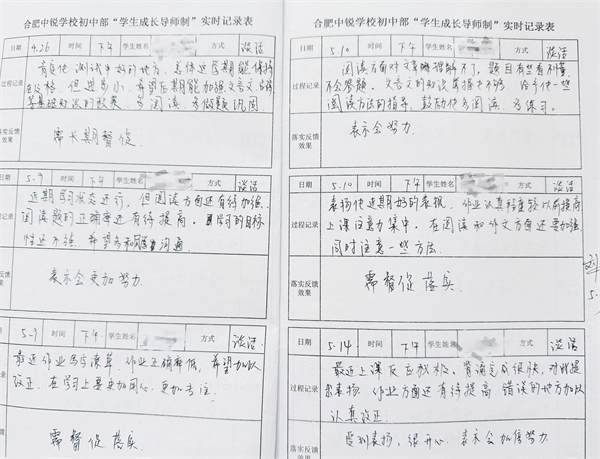 合肥中锐学校初中部“学生成长导师制”实时记录表
日期 4.26 时间 下午 学生姓名 方式 谈话
过程记录
肯定他测试中好的地方，总体近段期能保持
但进步小，希望后期能加强文言文、古诗
等基础知识的积累，多阅读，多做题巩固
落实反馈
效果
需长期督促
日期 5.9 时间 下午 学生姓名 方式 谈话
过程记录
近期学习状态还行，但阅读方面还有待加强，
阅读题的正确率还有待提高。学习的目标
性还不强，希望多和同学沟通
落实反馈
效果
表示会更加努力.
5.9 时间 下午 学生姓名 方式 谈话
最近作业书写潦草，作业正确率低，希望加以
改正，在学习上要更加用心，更加专注.
需督促落实
合肥中锐学校初中部“学生成长导师制”实时记录表
日期 5.10 时间 下午 学生姓名 方式 谈话
过程记录
阅读方面对文章理解不了，题目有些看不懂，
不会答题。文言文的知识掌握也不够。给予他一些
阅读方法的指导，鼓励他多阅读，多练习。
落实反馈
效果
表示会努力.
日期 5.10 时间 下午 学生姓名 方式 谈话
过程记录
表扬他近期好的表现，作业认真程度较以前提高
上课注意力集中。在阅读和作文方面还要加强
同时注意一些方法.
落实反馈
效果
需督促落实
日期 5.14 时间 下午 学生姓名 方式 谈话
过程记录
最近上课反应积极，背诵完成很快，对此提
出表扬。作业方面还有待提高，错误的地方加以
认真改正.
落实反馈
效果
受到表扬，很开心，表示会加倍努力.
5.